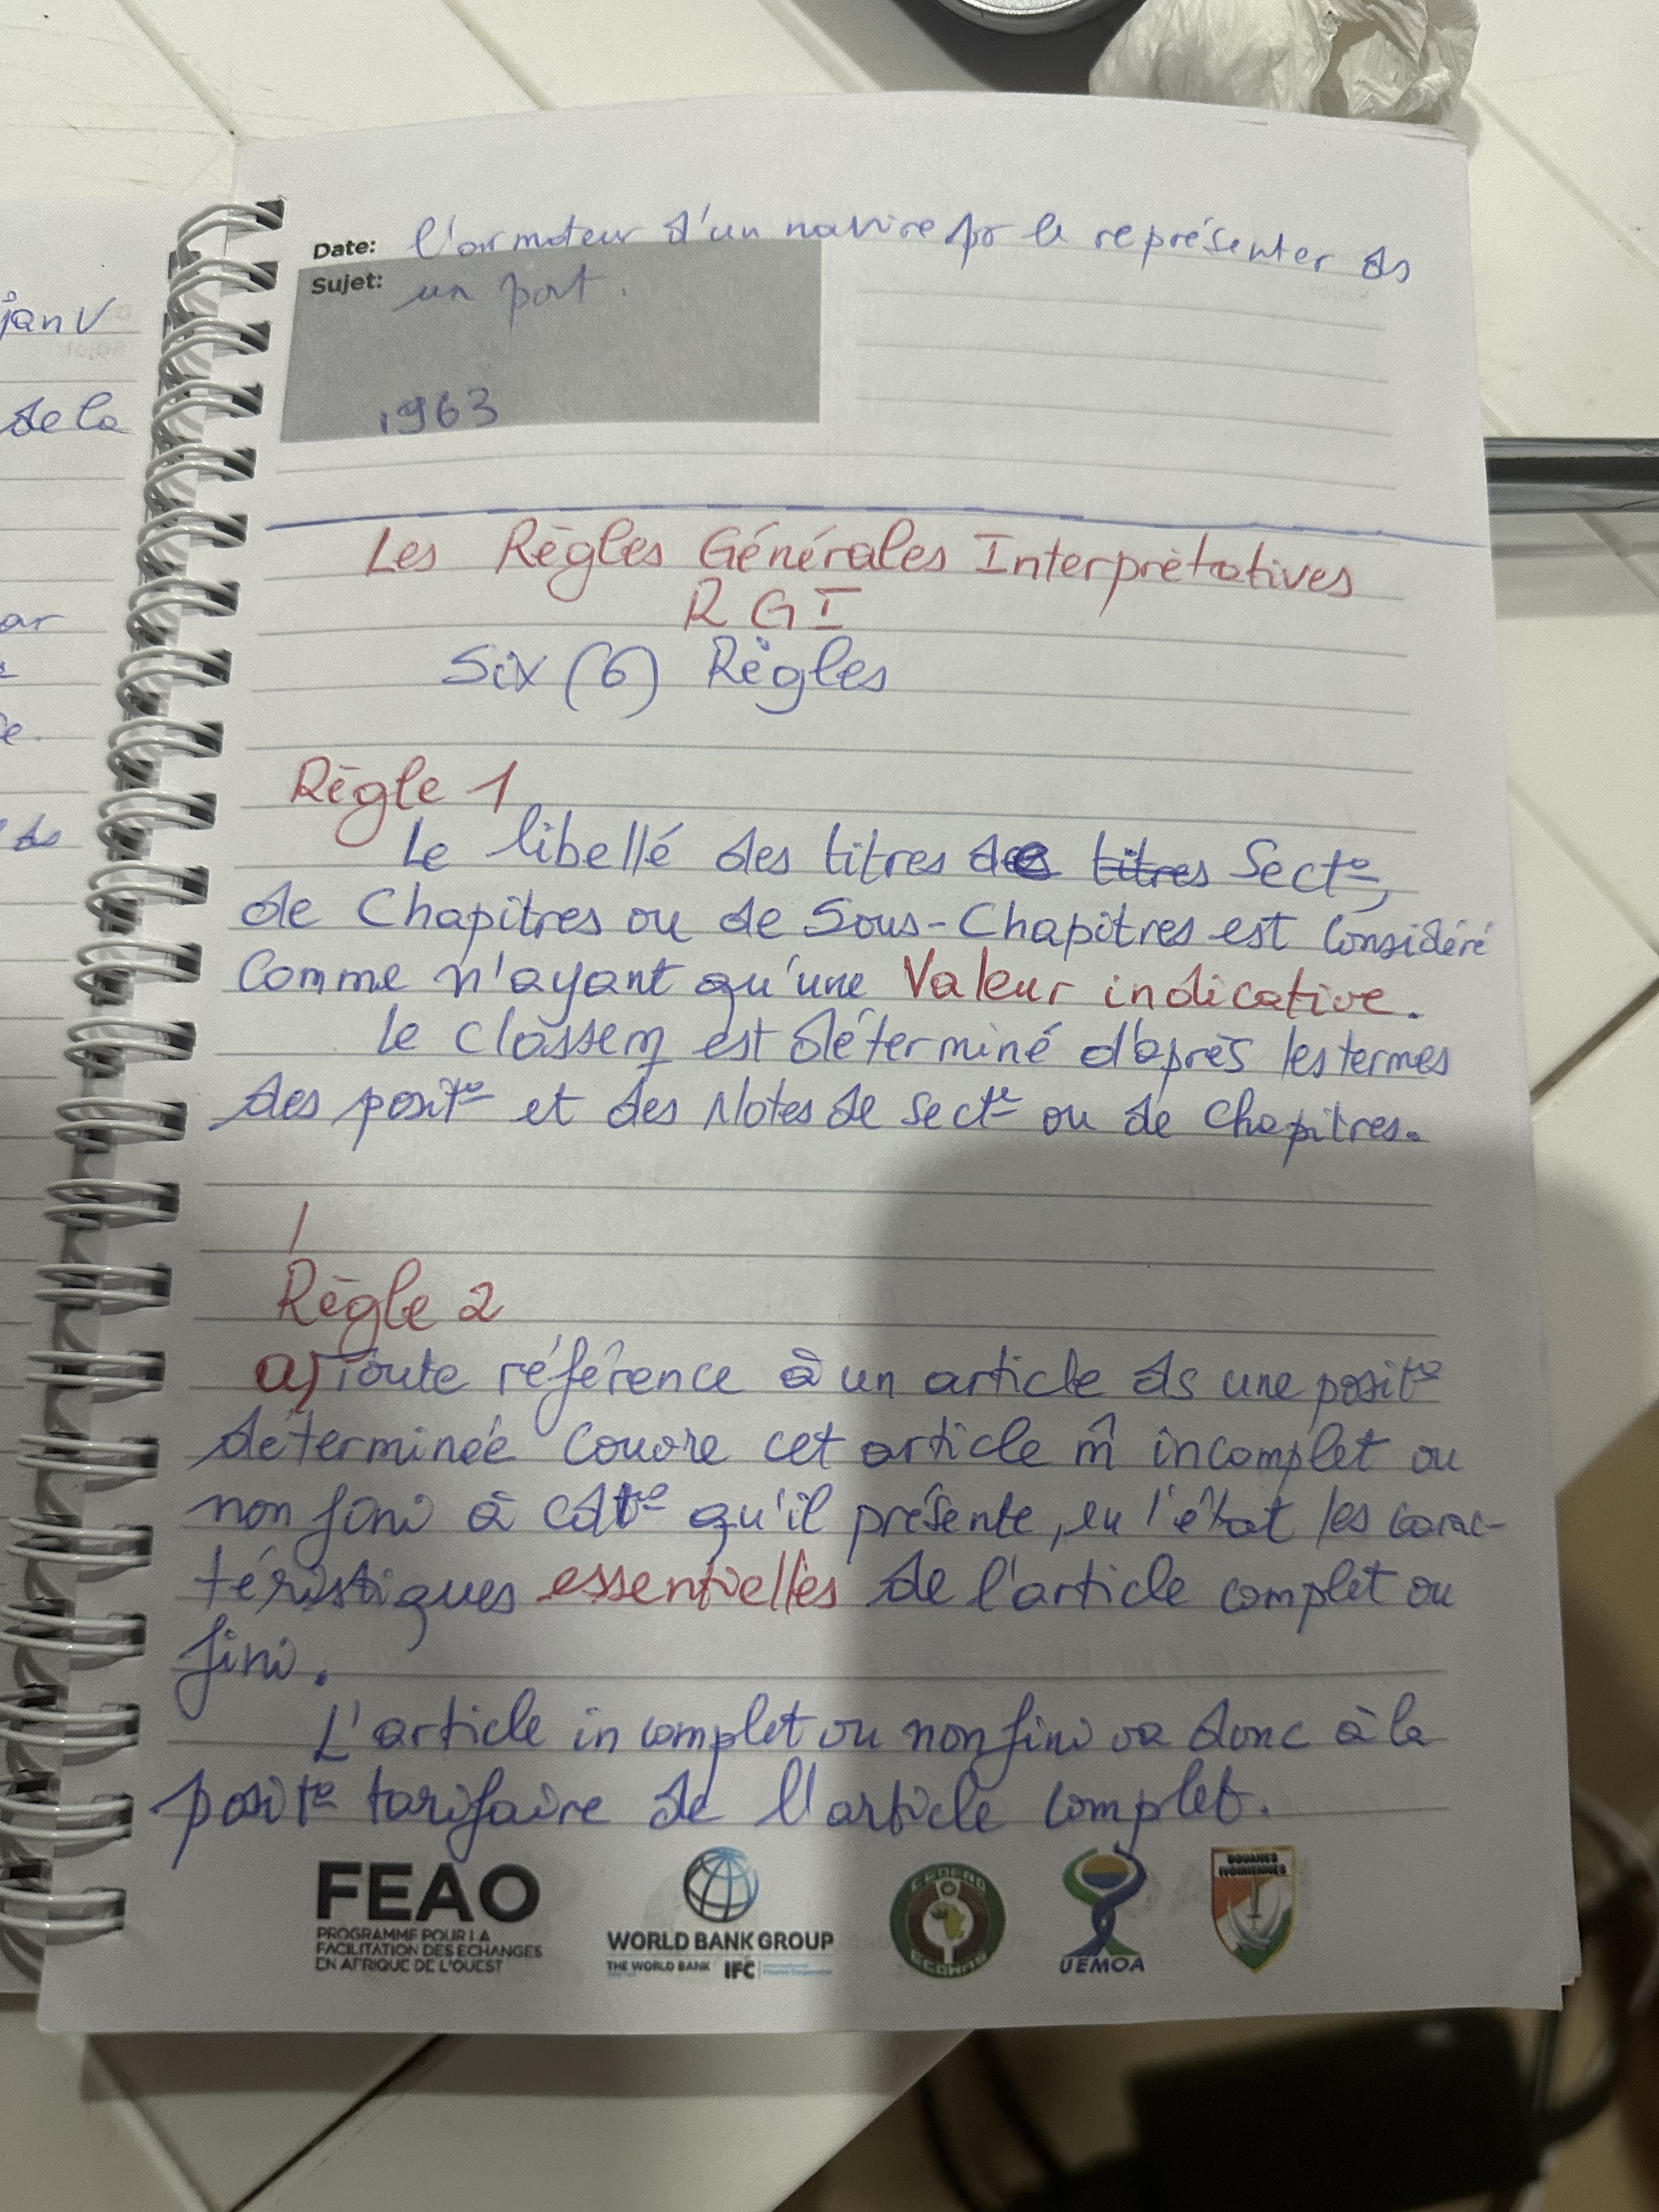 Date: l'armateur d'un navire pr le représenter ds
Sujet: un port.
1963
janv
de la
ar
e.
ds
Les Règles Générales Interprétatives
RGI
Six (6) Règles
Règle 1
Le libellé des titres de titres Sect°,
de Chapitres ou de Sous-Chapitres est considéré
Comme n'ayant qu'une Valeur indicative.
le Classem est déterminé d'après les termes
des posit° et des Notes de sect° ou de chapitres.
Règle 2
a) Toute référence à un article ds une posit°
déterminée couvre cet article m̂ incomplet ou
non fini à cdt° qu'il présente, en l'état les carac-
téristiques essentielles de l'article complet ou
fini.
L'article incomplet ou non fini va donc à la
posit° tarifaire de l'article complet.
FEAO
PROGRAMME POUR LA
FACILITATION DES ECHANGES
EN AFRIQUE DE L'OUEST
WORLD BANK GROUP
THE WORLD BANK IFC
CEDEAO
ECOWAS
UEMOA
DOUANES
IVOIRIENNES